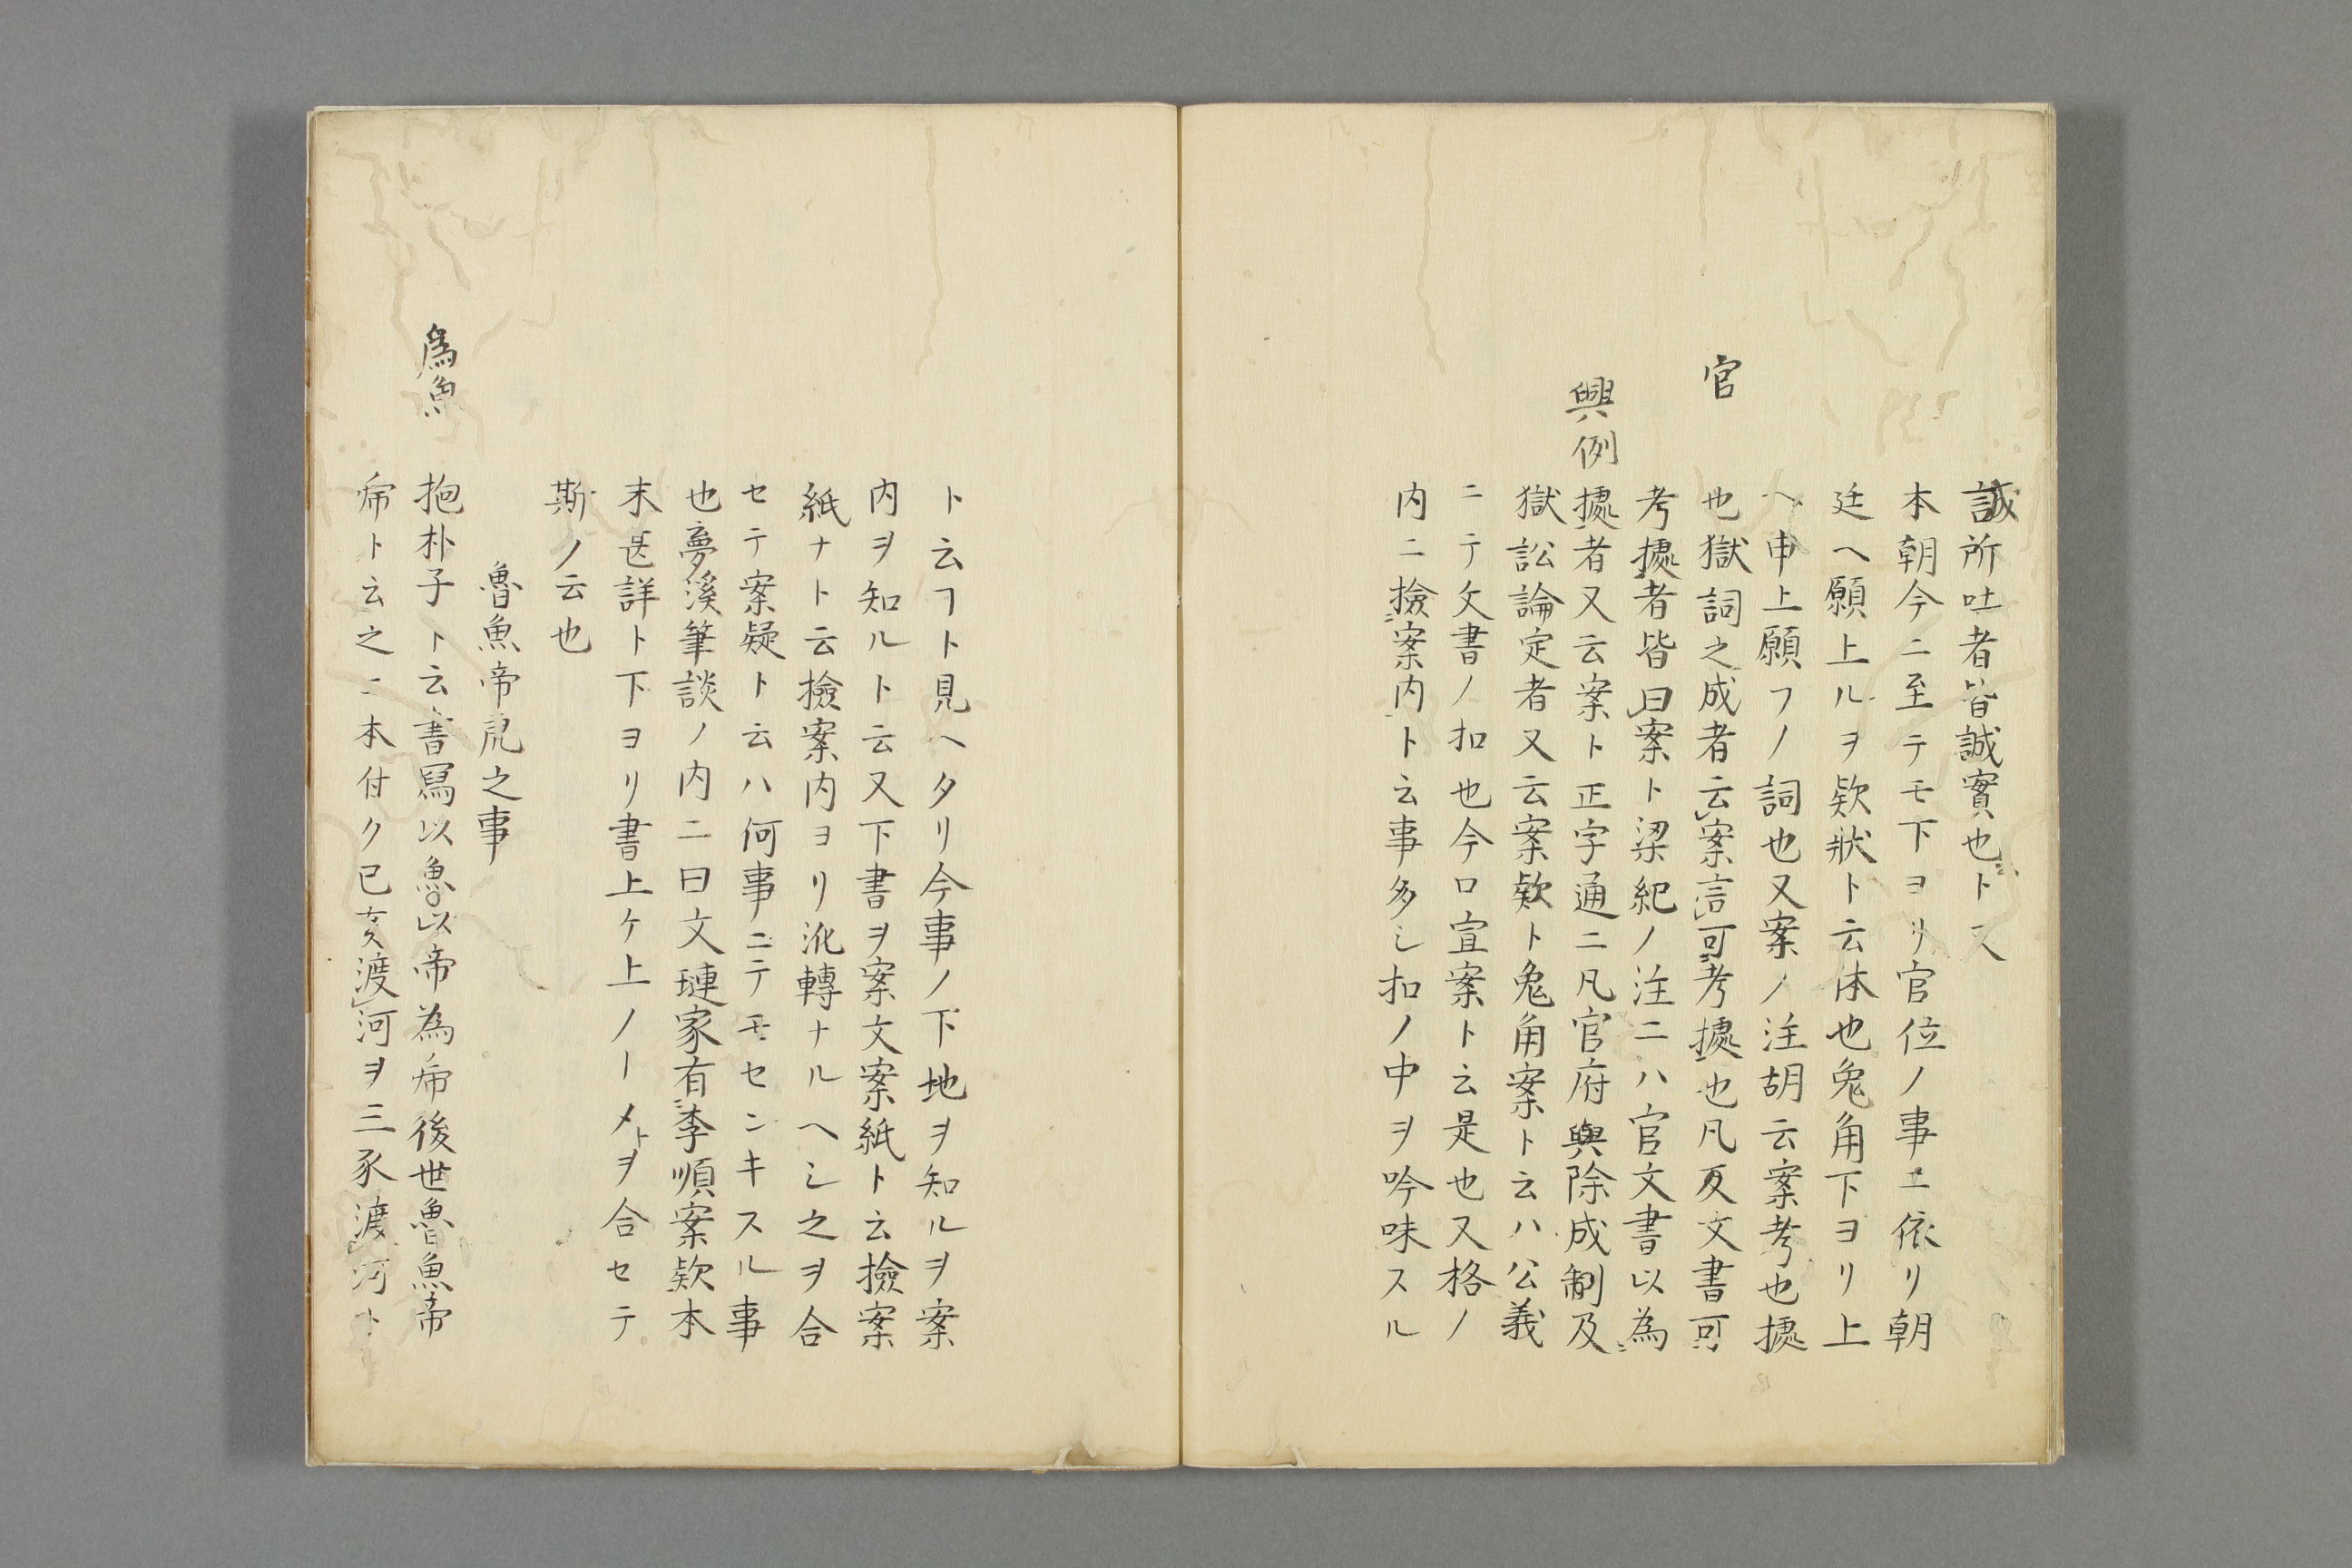 誠所吐者皆誠實也ト又
本朝今ニ至テモ下ヨリ官位ノ事ヱ依リ朝
廷へ願上ルヲ欵狀ト云体也兔角下ヨリ上
へ申上願フノ詞也又案ノ注胡云案考也㨿
官
也獄詞之成者云案言可考㨿也凡叓文書可
考㨿者皆曰案ト梁紀ノ注ニハ官文書以為
興例
㨿者又云案ト正字通ニ凡官府興除成制及
獄訟論定者又云案欵ト兔角案ト云ハ公義
ニテ文書ノ扣也今口宣案ト云是也又格ノ
内ニ撿案内ト云事多シ扣ノ中ヲ吟味スル
ト云フト見ヘタリ今事ノ下地ヲ知ルヲ案
内ヲ知ルト云又下書ヲ案文案紙ト云撿案
紙ナト云撿案内ヨリ㳅轉ナルヘシ之ヲ合
セテ案疑ト云ハ何事ニテモセンキスル事
也夢溪筆談ノ内ニ曰文璉家有李順案欵本
末甚詳ト下ヨリ書上ケ上ノーメトヲ合セテ
斯ノ云也
魯魚帝虎之事
為魚
抱朴子ト云書冩以魯以帝為帍後世魯魚帝
帍ト云之ニ本付ク已亥渡河ヲ三豕渡河ト